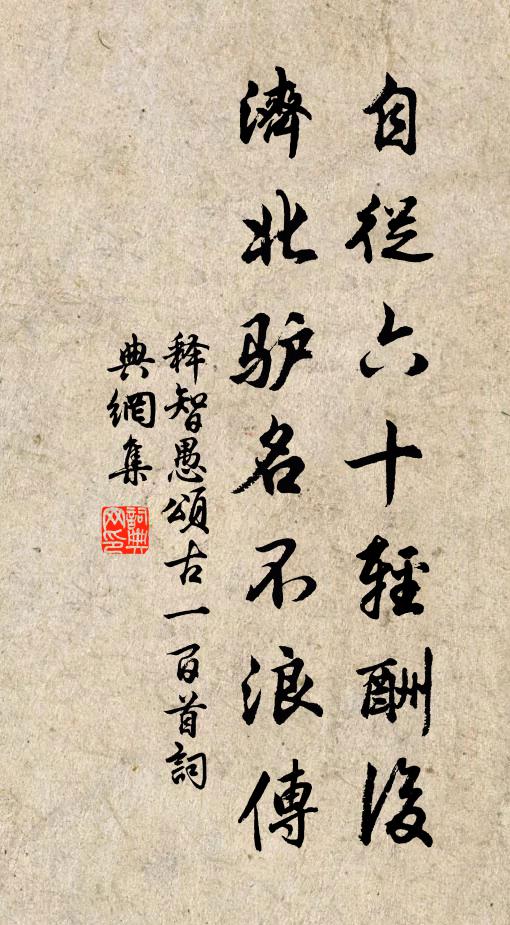 自從六十輕酬後
濟北驴名不浪傳
释智愚頌古一百首詞
典網集
詞典网印